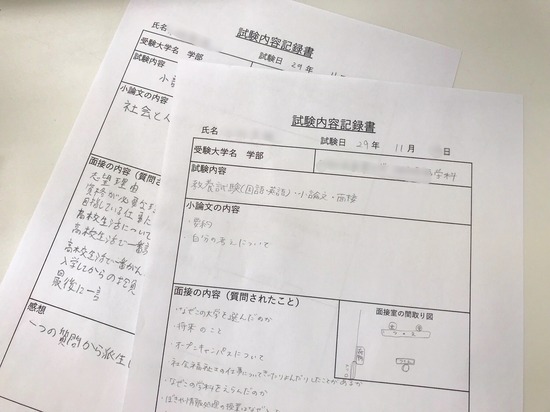 試験内容記録書
氏名
試験日 29年 11
受験大学名 学部
試験内容
小論文の内容
社会と人
面接の内容(質問された
志望理由
高校生活について
高校生活で一番
高校生活で一番がん
入学してからの抱負
最後に一言
感想
一つの質問から派生し
試験内容記録書
氏名
試験日 29年 11月 日
受験大学名 学部
学科
試験内容
教養試験(国語・英語)・小論文・面接
小論文の内容
・要約
・自分の考えについて
面接の内容(質問されたこと)
面接室の間取り図
・なぜこの大学を選んだのか
・将来のこと
・オープンキャンパスについて
・なぜこの学科をえらんだのか